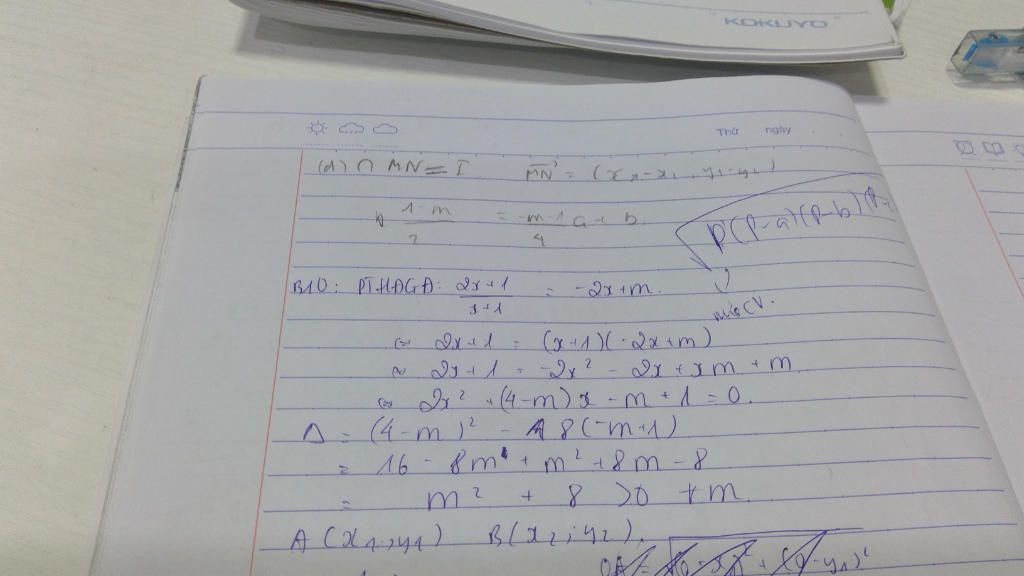 KOKUYO
Thứ ngày
(d) ∩ MN = I. MN = (x₁-x₂, y₁-y₂)
1-m/2 = -m-1/4 a + b.
√P(P-a)(P-b)(P-
B10: PTHĐGĐ: 2x+1/x+1 = -2x+m.
⇔ 2x+1 = (x+1)(-2x+m)
⇔ 2x+1 = -2x² - 2x + xm + m
⇔ 2x² + (4-m)x - m + 1 = 0.
Δ = (4-m)² - 8(-m+1)
= 16 - 8m + m² + 8m - 8
= m² + 8 > 0 ∀m.
A(x₁;y₁) B(x₂;y₂).